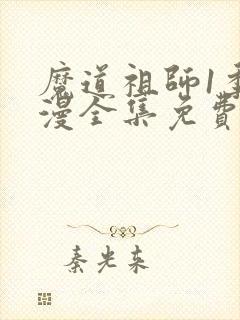 魔道祖師1季
漫全集免費
秦光东